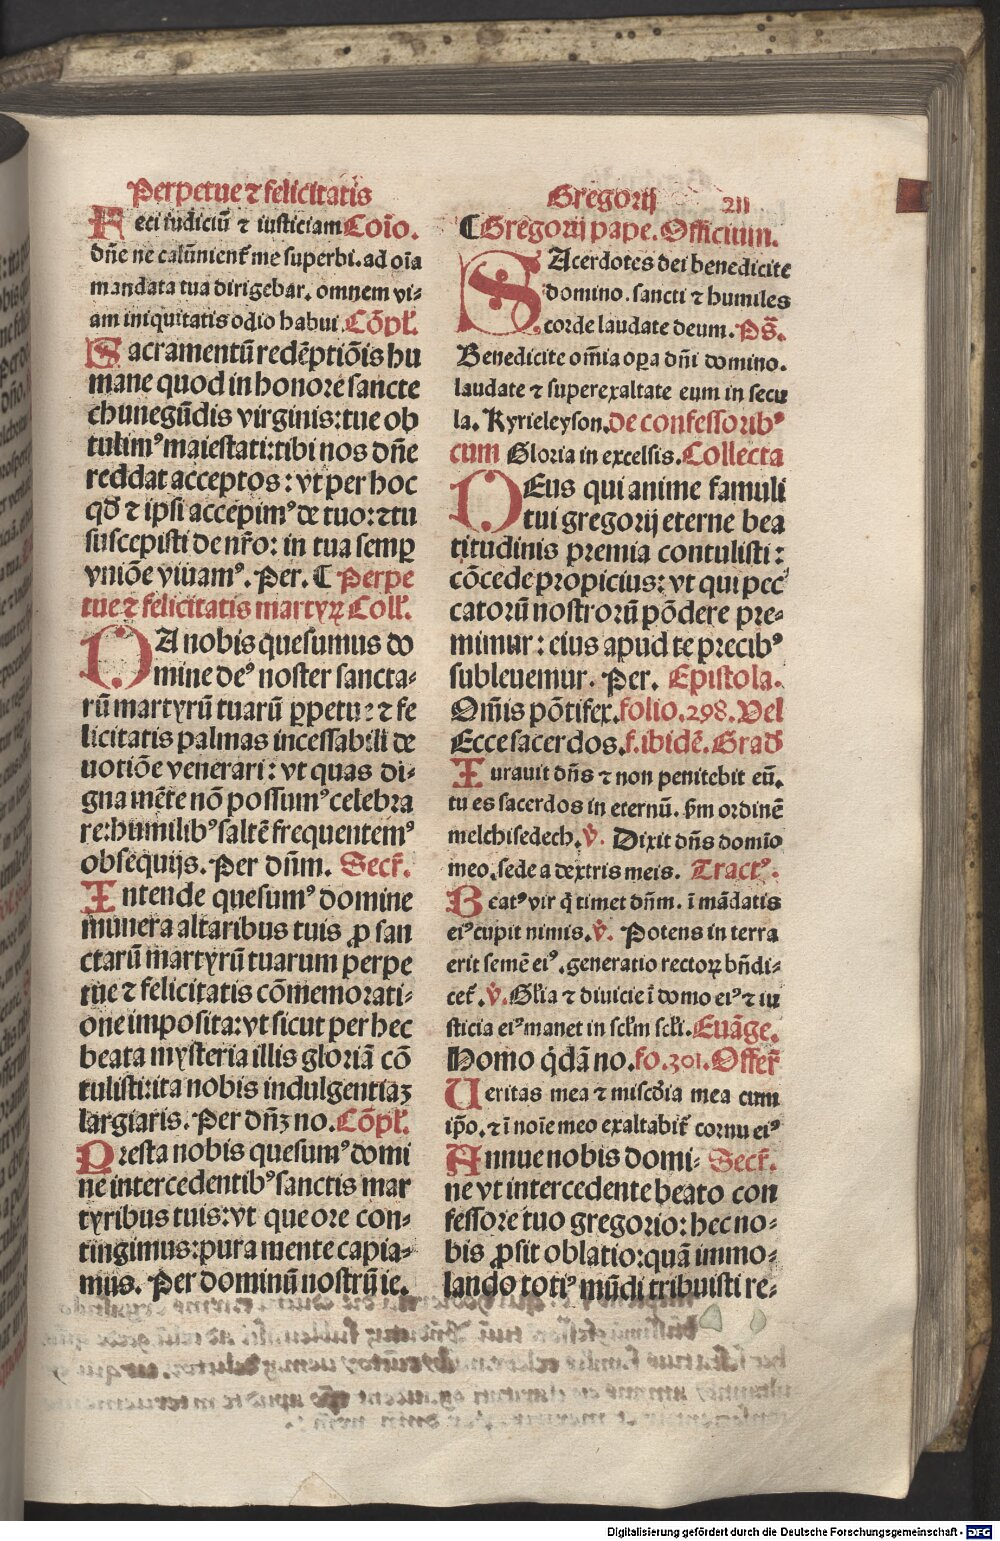 Perpetue ⁊ felicitatis
Feci iudiciū ⁊ iusticiam Coīo.
dn̄e ne calūnient᷑ me superbi. ad oīa
mandata tua dirigebar. omnem vi⸗
am iniquitatis odio habui. Cōpl᷑.
Sacramentū redēptiōis hu
mane quod in honore sancte
chunegūdis virginis: tue ob
tulimꝰ maiestati: tibi nos dn̄e
reddat acceptos: vt per hoc
qd̄ ⁊ ipsi accepimꝰ de tuo: ⁊ tu
suscepisti de nr̄o: in tua semꝑ
vniōe viuamꝰ. Per. ¶ Perpe
tue ⁊ felicitatis martyrꝝ Coll᷑.
DA nobis quesumus do
mine deꝰ noster sancta⸗
rū martyrū tuarū ꝑpetue ⁊ fe
licitatis palmas incessabili de
uotiōe venerari: vt quas di⸗
gna mēte nō possumꝰ celebra
re: humilibꝰ saltē frequentemꝰ
obsequijs. Per dn̄m. Secr᷑.
Intende quesumꝰ domine
munera altaribus tuis ꝓ san
ctarū martyrū tuarum perpe
tue ⁊ felicitatis cōmemorati⸗
one imposita: vt sicut per hec
beata mysteria illis gloriā cō
tulisti: ita nobis indulgentiaꝫ
largiaris. Per dn̄ꝫ no. Cōpl᷑.
Presta nobis quesumꝰ domi
ne intercedentibꝰ sanctis mar
tyribus tuis: vt que ore con⸗
tingimus: pura mente capia⸗
mus. Per dominū nostrū ie.
Gregorij 211
¶ Gregorij pape. Officium.
SAcerdotes dei benedicite
domino. sancti ⁊ humiles
corde laudate deum. Ps̄.
Benedicite om̄ia oꝑa dn̄i domino.
laudate ⁊ superexaltate eum in secu
la. Kyrieleyson. de confessoribꝰ
cum Gloria in excelsis. Collecta
DEus qui anime famuli
tui gregorij eterne bea
titudinis premia contulisti:
cōcede propicius: vt qui pec
catorū nostrorū pōdere pre⸗
mimur: eius apud te precibꝰ
subleuemur. Per. Epistola.
Om̄is pōtifex. folio. 298. Vel
Ecce sacerdos. f. ibidē. Grad̄
Iurauit dn̄s ⁊ non penitebit eū.
tu es sacerdos in eternū. s̄m ordinē
melchisedech. ℣. Dixit dn̄s domīo
meo. sede a dextris meis. Tractꝰ.
Beatꝰ vir q̇ timet dn̄m. ī mādatis
eiꝰ cupit nimis. ℣. Potens in terra
erit semē eiꝰ. generatio rectorꝝ bn̄di⸗
cet᷑. ℣. Gl᷑ia ⁊ diuicie ī domo eiꝰ ⁊ iu
sticia eiꝰ manet in scl᷑m scl᷑i. Euāge.
Homo q̇dā no. fo. 301. Offer᷑
Ueritas mea ⁊ miscd̓ia mea cum
ip̄o. ⁊ ī noīe meo exaltabit᷑ cornu eiꝰ
Annue nobis domi⸗ Secr᷑.
ne vt intercedente beato con
fessore tuo gregorio: hec no⸗
bis ꝓsit oblatio: quā immo⸗
lando totiꝰ mūdi tribuisti re⸗
Digitalisierung gefördert durch die Deutsche Forschungsgemeinschaft - DFG